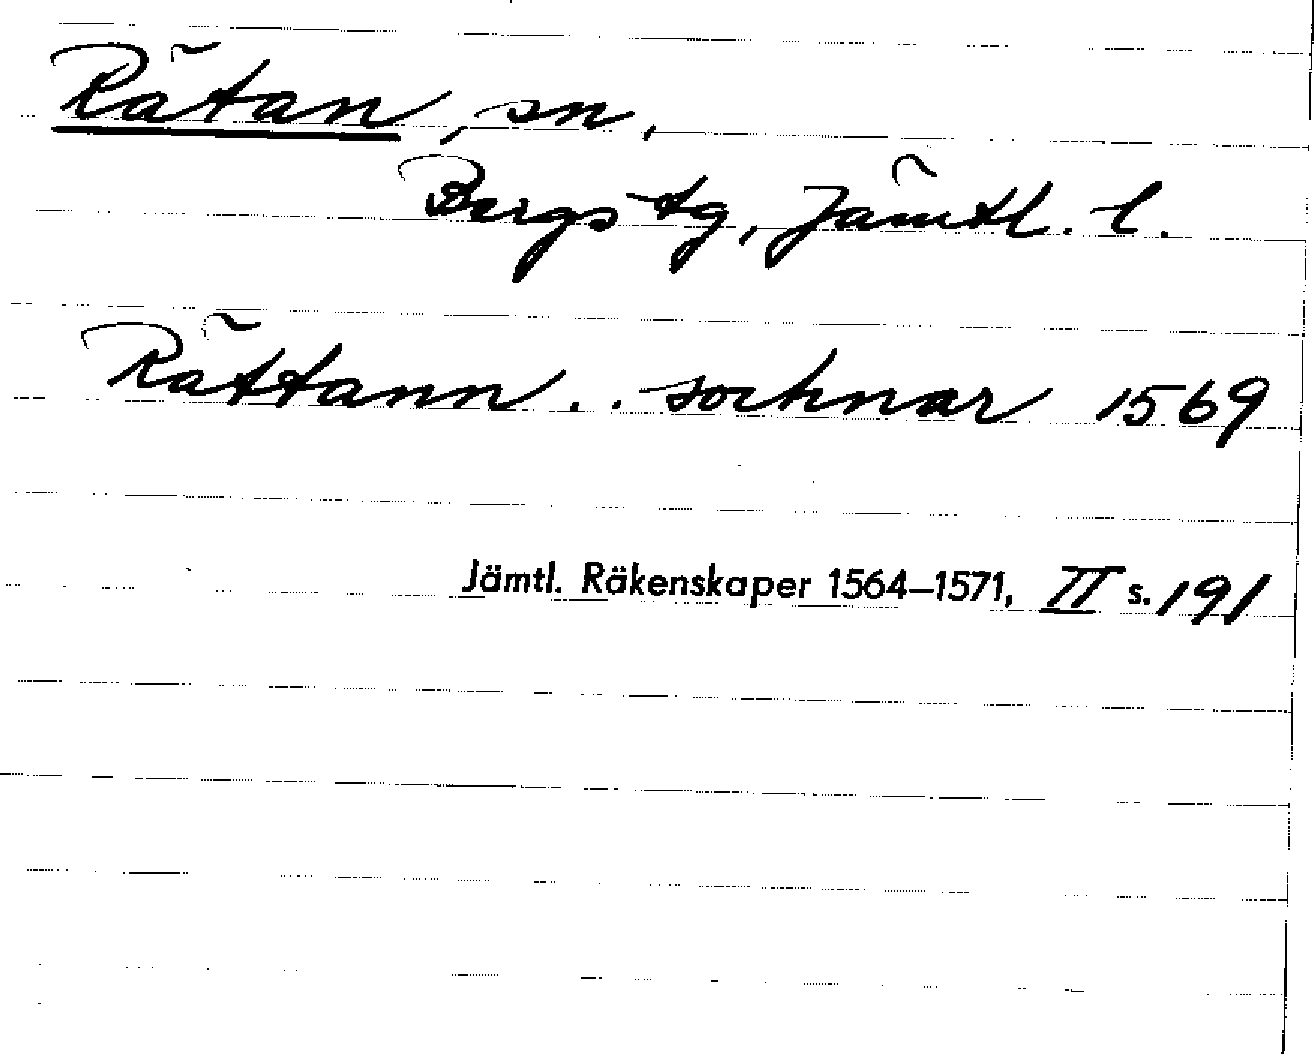 Rätan, sn,
Bergs tg, Jämtl. l.
Rättann .. sochnar 1569
Jämtl. Räkenskaper 1564–1571, II s. 191